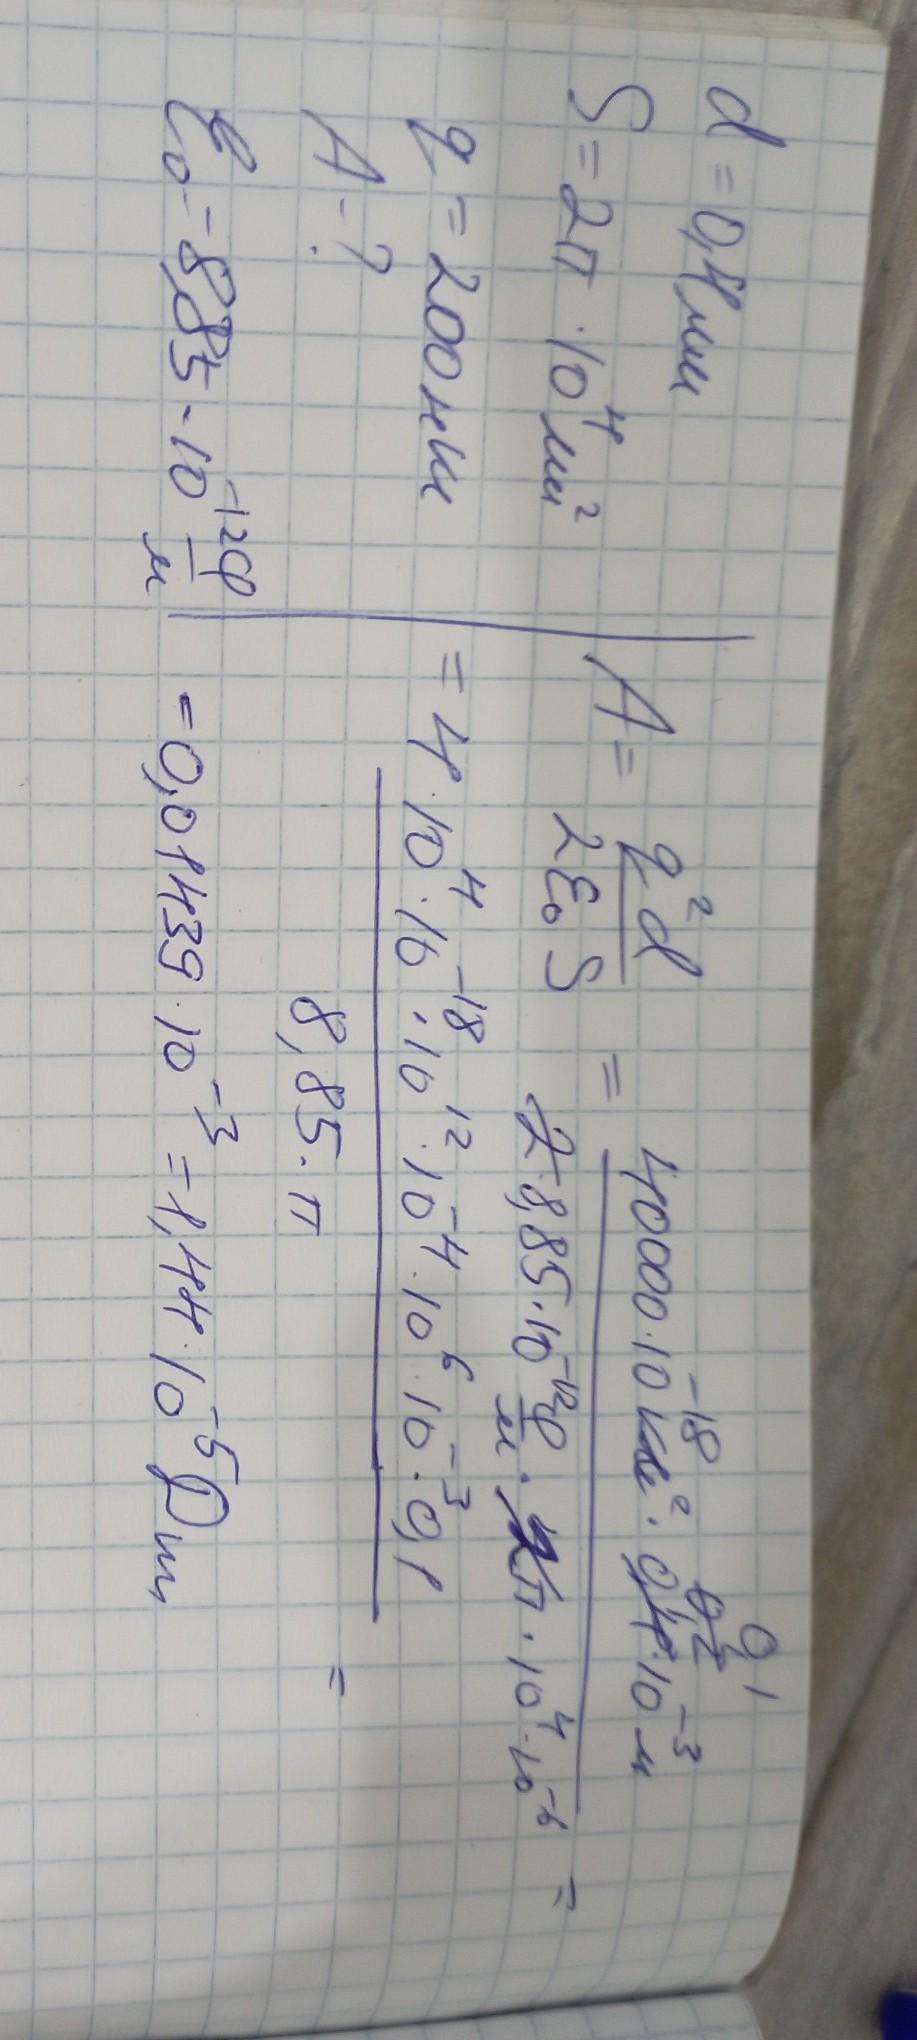 d = 0,4 мм
S = 2π · 10⁴ мм²
q = 200 нКл
A - ?
ε₀ = 8,85 · 10⁻¹² Ф/м
A = q²d / 2ε₀S = 40000 · 10⁻¹⁸ Кл² · 0,4 · 10⁻³ м / 2 · 8,85 · 10⁻¹² Ф/м · 2π · 10⁴ · 10⁻⁶ =
0,2 0,1
= 4 · 10⁴ · 10⁻¹⁸ · 10¹² · 10⁻⁴ · 10⁶ · 10⁻³ · 0,1 / 8,85 · π =
= 0,01439 · 10⁻³ = 1,44 · 10⁻⁵ Дж